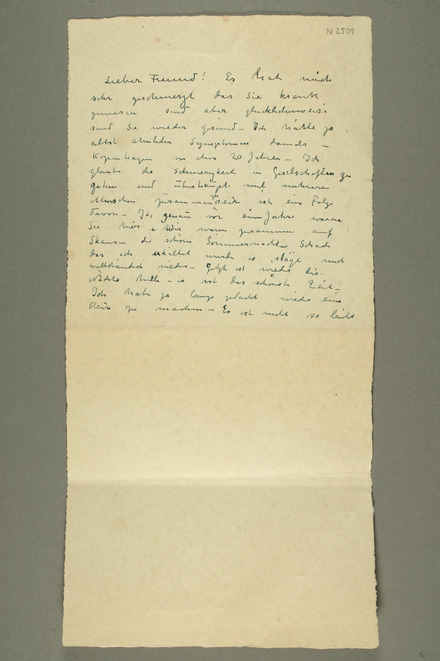 N 2501
Lieber Freund! Es hat mich
sehr geschmerzt das Sie krank
gewesen sind aber glücklicherweise
sind Sie wieder gesund – Ich hatte ja
selbst ähnliche Symptomen damals in
Kopenhagen vor etwa 20 Jahren – Ich
glaube die Schwerigkeit in Gesellschaften zu
gehen und überhaupt mit mehreren
Menschen zusammen zu sein ist eine Folge
davon – Ja, genau vor einem Jahre waren
Sie hier – Wir waren zusammen auf
Skansen die schöne Sommernacht – Schade
das ich erkältet wurde es mich
vollständich nieder – Jetzt ist wieder die
Nächte helle – es ist das schönste Zeit –
Ich habe ja lange gedacht wieder eine
Reise zu machen – Es ist nicht so leicht